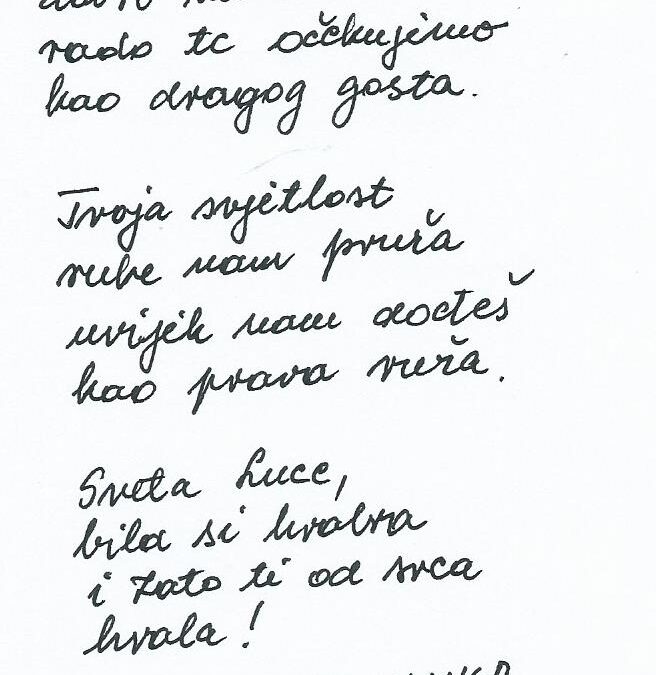 rado te očekujemo
kao dragog gosta.
Tvoja svjetlost
ruke nam pruža
uvijek nam dođeš
kao prava ruža.
Sveta Luce,
bila si hrabra
i zato ti od srca
hvala!